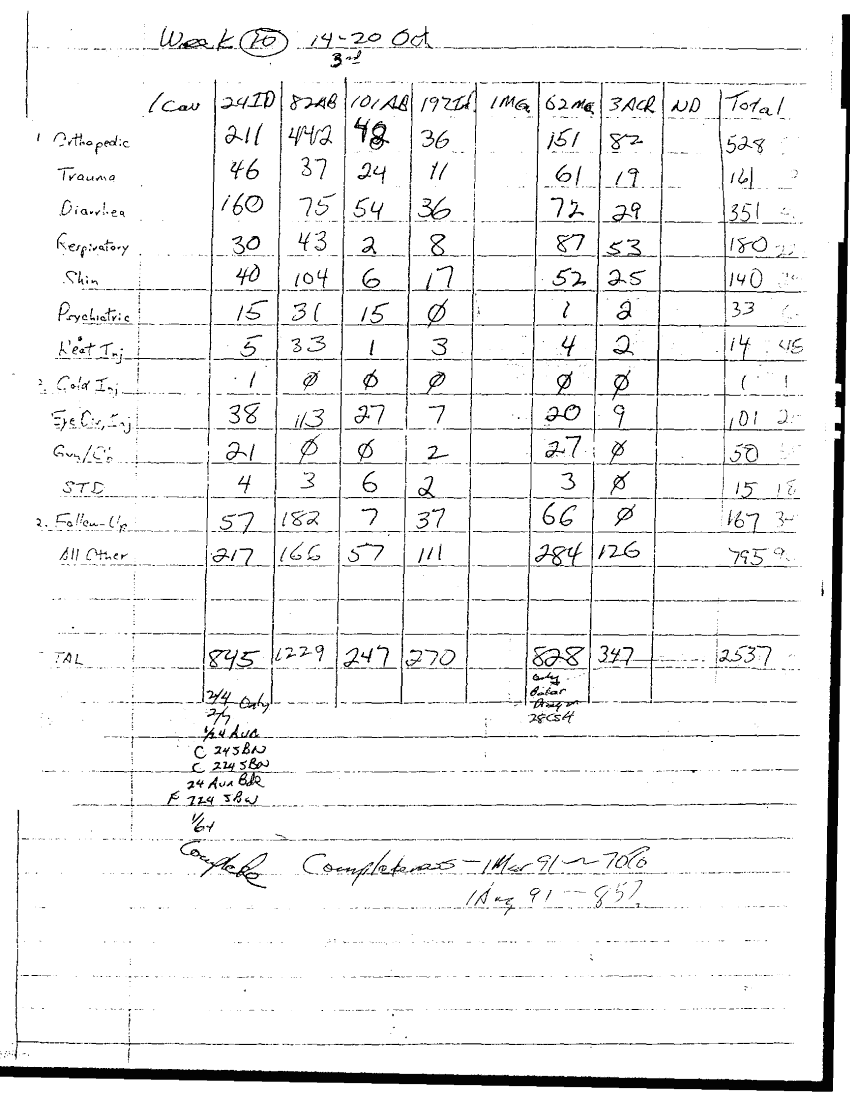 Week 10 14-20 Oct
3rd
1 Cav 24ID 82AB 101AB 197In 1MG 62MG 3ACR ND Total
1 Orthopedic 211 442 48 36 151 82 528
Trauma 46 37 24 11 61 19 161
Diarrhea 160 75 54 36 72 29 351
Respiratory 30 43 2 8 87 53 180
Skin 40 104 6 17 52 25 140
Psychiatric 15 31 15 Ø 1 2 33
Heat Inj 5 33 1 3 4 2 14 48
2. Cold Inj 1 Ø Ø Ø Ø Ø 1 1
Eye Dis, Inj 38 113 27 7 20 9 101
21 Ø Ø 2 27 Ø 50
STD 4 3 6 2 3 Ø 15 18
2. Follow-Up 57 182 7 37 66 Ø 167
All Other 217 166 57 111 284 126 795
TAL 845 1229 247 270 828 347 2537
2/4 Only
2/7
1/24 Avn
C 24 SBN
C 224 SBN
24 Avn Bde
F 224 SBN
1/64
Only
28CSH
Complete Completeness - 1 Mar 91 ~ 70%
1 Aug 91 - 85%